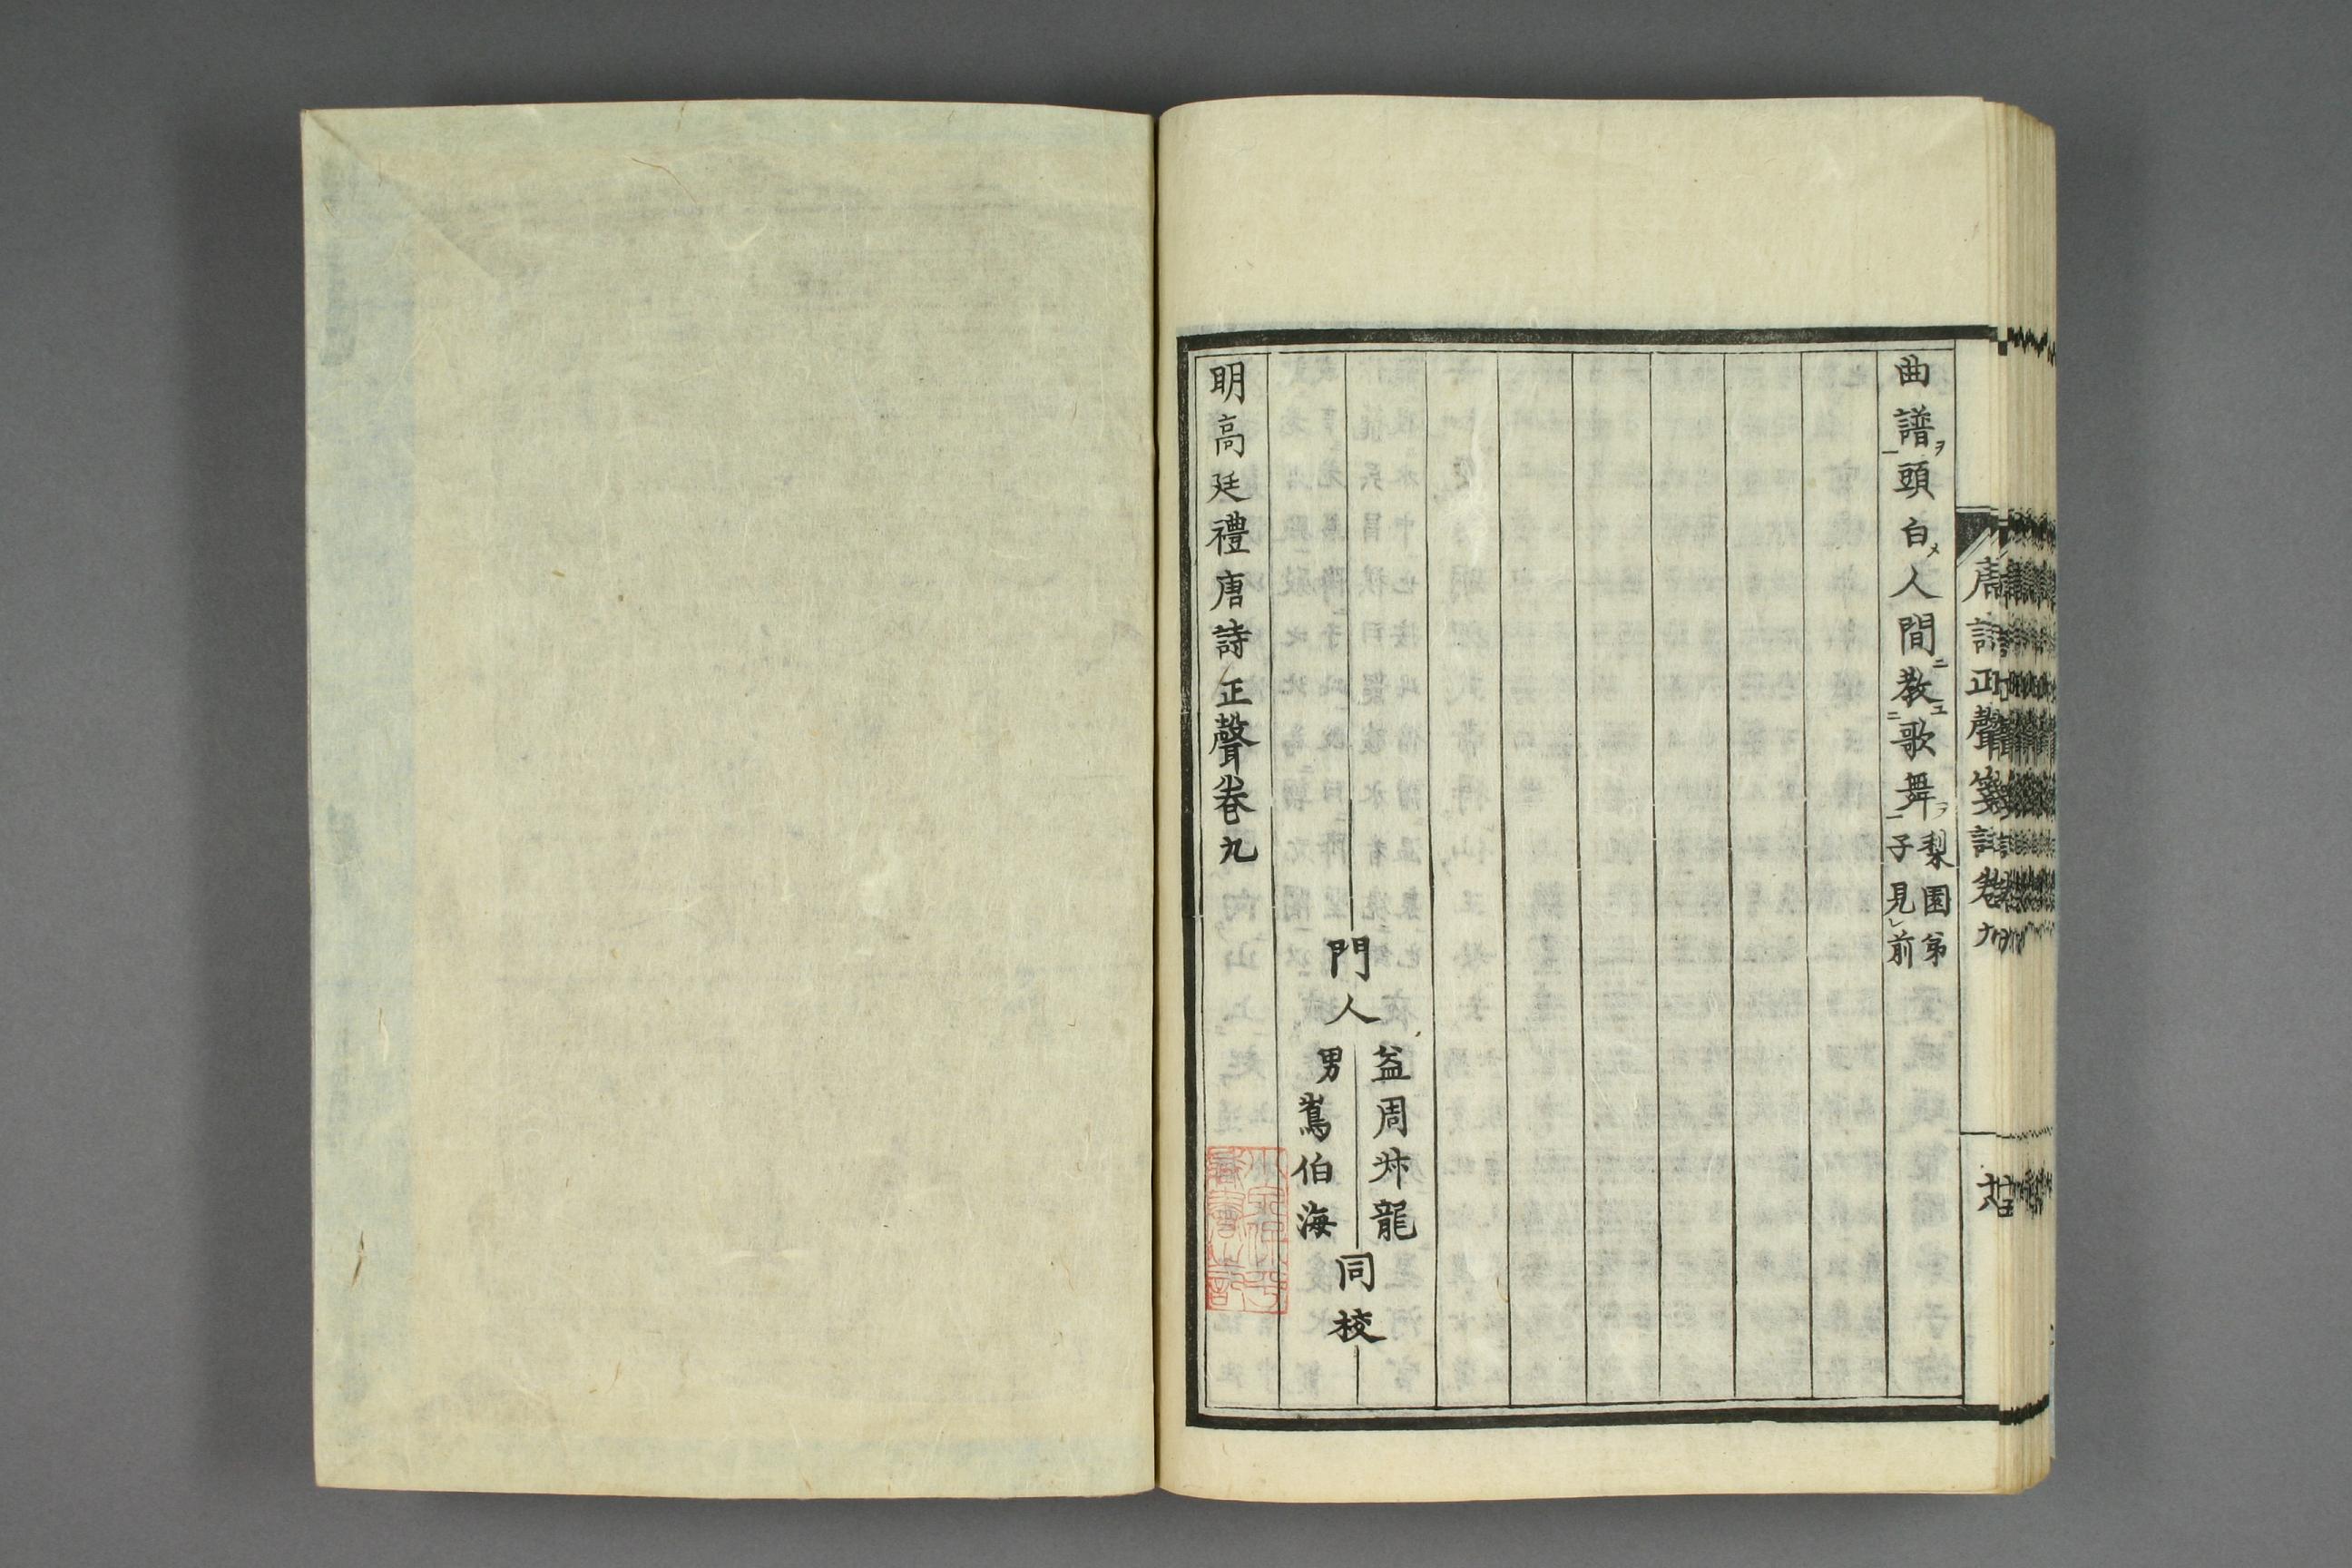 唐詩正聲箋註卷九
曲譜ヲ一頭白メ人間ニ教エ二歌舞ヲ一梨園弟
子見レ前
門人
益周叔龍
男嵩伯海
同校
明高廷禮唐詩正聲卷九